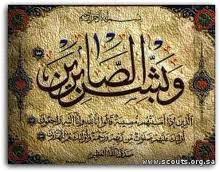 بسم الله الرحمن الرحيم
وَبَشِّرِ الصَّابِرِينَ
الذين إذا أصابتهم مصيبة قالوا إنا لله وإنا إليه راجعون
أولئك عليهم صلوات من ربهم ورحمة وأولئك هم المهتدون
صدق الله العظيم
www.scouts.org.sa